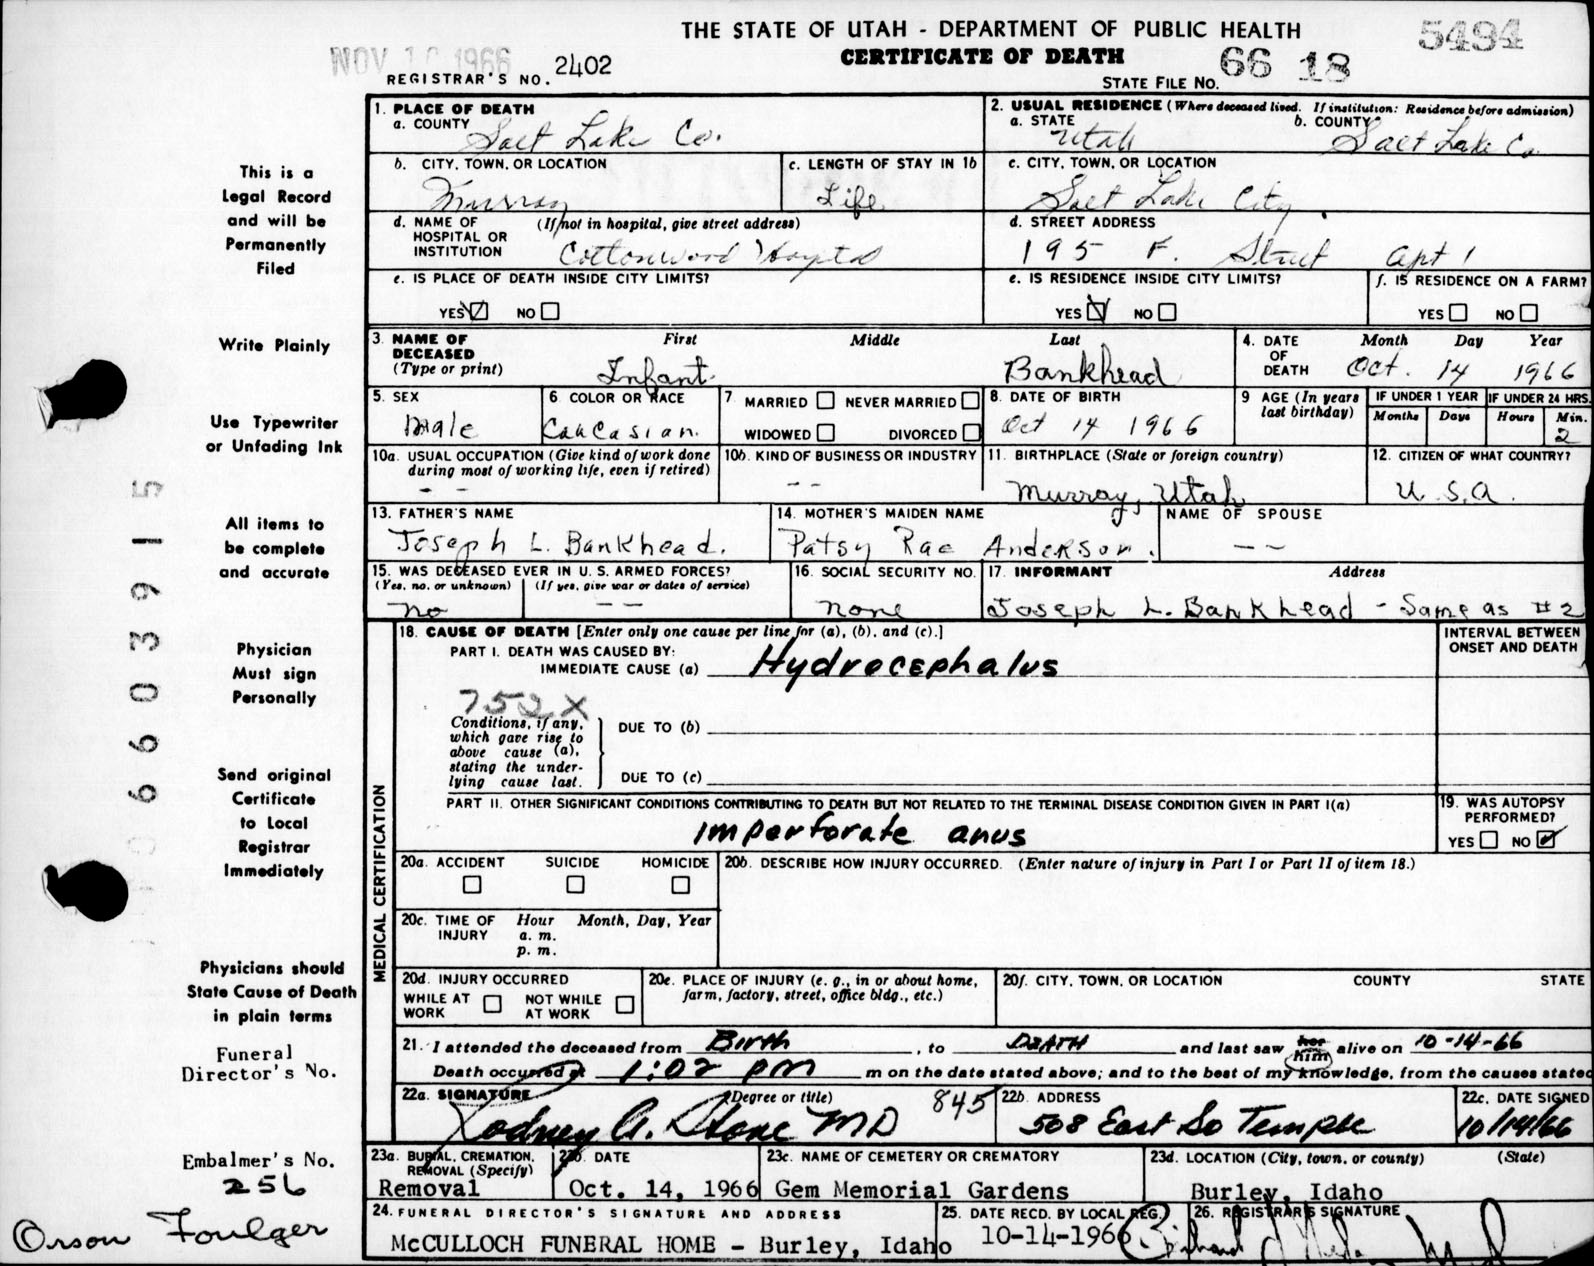 THE STATE OF UTAH - DEPARTMENT OF PUBLIC HEALTH
5494
CERTIFICATE OF DEATH
NOV 10 1966
REGISTRAR'S NO. 2402
STATE FILE NO. 66 18
This is a
Legal Record
and will be
Permanently
Filed
Write Plainly
Use Typewriter
or Unfading Ink
All items to
be complete
and accurate
Physician
Must sign
Personally
Send original
Certificate
to Local
Registrar
Immediately
Physicians should
State Cause of Death
in plain terms
Funeral
Director's No.
Embalmer's No.
256
Orson Foulger
6603915
1. PLACE OF DEATH
a. COUNTY
Salt Lake Co.
2. USUAL RESIDENCE (Where deceased lived. If institution: Residence before admission)
a. STATE
Utah
b. COUNTY
Salt Lake Co.
b. CITY, TOWN, OR LOCATION
Murray
c. LENGTH OF STAY IN 1b
Life
c. CITY, TOWN, OR LOCATION
Salt Lake City
d. NAME OF HOSPITAL OR INSTITUTION (If not in hospital, give street address)
Cottonwood Hospital
d. STREET ADDRESS
195 F. Street Apt 1
e. IS PLACE OF DEATH INSIDE CITY LIMITS?
YES NO
e. IS RESIDENCE INSIDE CITY LIMITS?
YES NO
f. IS RESIDENCE ON A FARM?
YES NO
3. NAME OF DECEASED (Type or print)
First Middle Last
Infant Bankhead
4. DATE OF DEATH
Month Day Year
Oct. 14 1966
5. SEX
Male
6. COLOR OR RACE
Caucasian.
7. MARRIED NEVER MARRIED
WIDOWED DIVORCED
8. DATE OF BIRTH
Oct 14 1966
9 AGE (In years last birthday)
IF UNDER 1 YEAR
Months Days
IF UNDER 24 HRS.
Hours Min.
2
10a. USUAL OCCUPATION (Give kind of work done during most of working life, even if retired)
- -
10b. KIND OF BUSINESS OR INDUSTRY
- -
11. BIRTHPLACE (State or foreign country)
Murray, Utah
12. CITIZEN OF WHAT COUNTRY?
U.S.A.
13. FATHER'S NAME
Joseph L. Bankhead.
14. MOTHER'S MAIDEN NAME
Patsy Rae Anderson.
NAME OF SPOUSE
- -
15. WAS DECEASED EVER IN U.S. ARMED FORCES?
(Yes, no, or unknown) (If yes, give war or dates of service)
no - -
16. SOCIAL SECURITY NO.
none
17. INFORMANT Address
Joseph L. Bankhead - Same as #2
MEDICAL CERTIFICATION
18. CAUSE OF DEATH [Enter only one cause per line for (a), (b), and (c).]
INTERVAL BETWEEN ONSET AND DEATH
PART I. DEATH WAS CAUSED BY:
IMMEDIATE CAUSE (a) Hydrocephalus
752X
Conditions, if any, which gave rise to above cause (a), stating the underlying cause last.
DUE TO (b)
DUE TO (c)
PART II. OTHER SIGNIFICANT CONDITIONS CONTRIBUTING TO DEATH BUT NOT RELATED TO THE TERMINAL DISEASE CONDITION GIVEN IN PART I(a)
imperforate anus
19. WAS AUTOPSY PERFORMED?
YES NO
20a. ACCIDENT SUICIDE HOMICIDE
20b. DESCRIBE HOW INJURY OCCURRED. (Enter nature of injury in Part I or Part II of item 18.)
20c. TIME OF INJURY Hour Month, Day, Year
a. m.
p. m.
20d. INJURY OCCURRED
WHILE AT WORK NOT WHILE AT WORK
20e. PLACE OF INJURY (e. g., in or about home, farm, factory, street, office bldg., etc.)
20f. CITY, TOWN, OR LOCATION COUNTY STATE
21. I attended the deceased from Birth, to DEATH and last saw her him alive on 10-14-66
Death occurred at 1:02 pm m on the date stated above; and to the best of my knowledge, from the causes stated
22a. SIGNATURE (Degree or title)
Rodney A. Stone MD 845
22b. ADDRESS
508 East So Temple
22c. DATE SIGNED
10/14/66
23a. BURIAL, CREMATION, REMOVAL (Specify)
Removal
23b. DATE
Oct. 14, 1966
23c. NAME OF CEMETERY OR CREMATORY
Gem Memorial Gardens
23d. LOCATION (City, town, or county) (State)
Burley, Idaho
24. FUNERAL DIRECTOR'S SIGNATURE AND ADDRESS
McCULLOCH FUNERAL HOME - Burley, Idaho
25. DATE RECD. BY LOCAL REG.
10-14-1966
26. REGISTRAR'S SIGNATURE